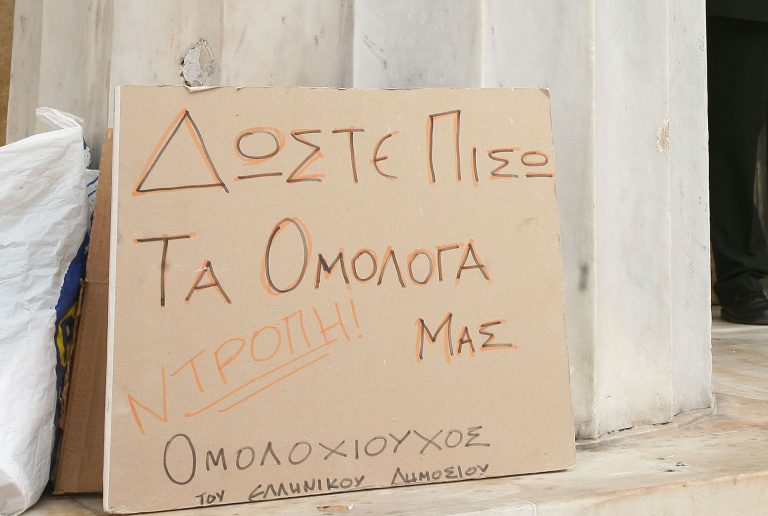 ΔΩΣΤΕ ΠΙΣΩ
ΤΑ ΟΜΟΛΟΓΑ
ΜΑΣ
ΝΤΡΟΠΗ!
ΟΜΟΛΟΧΙΟΥΧΟΣ
ΤΟΥ ΕΛΛΗΝΙΚΟΥ ΔΗΜΟΣΙΟΥ